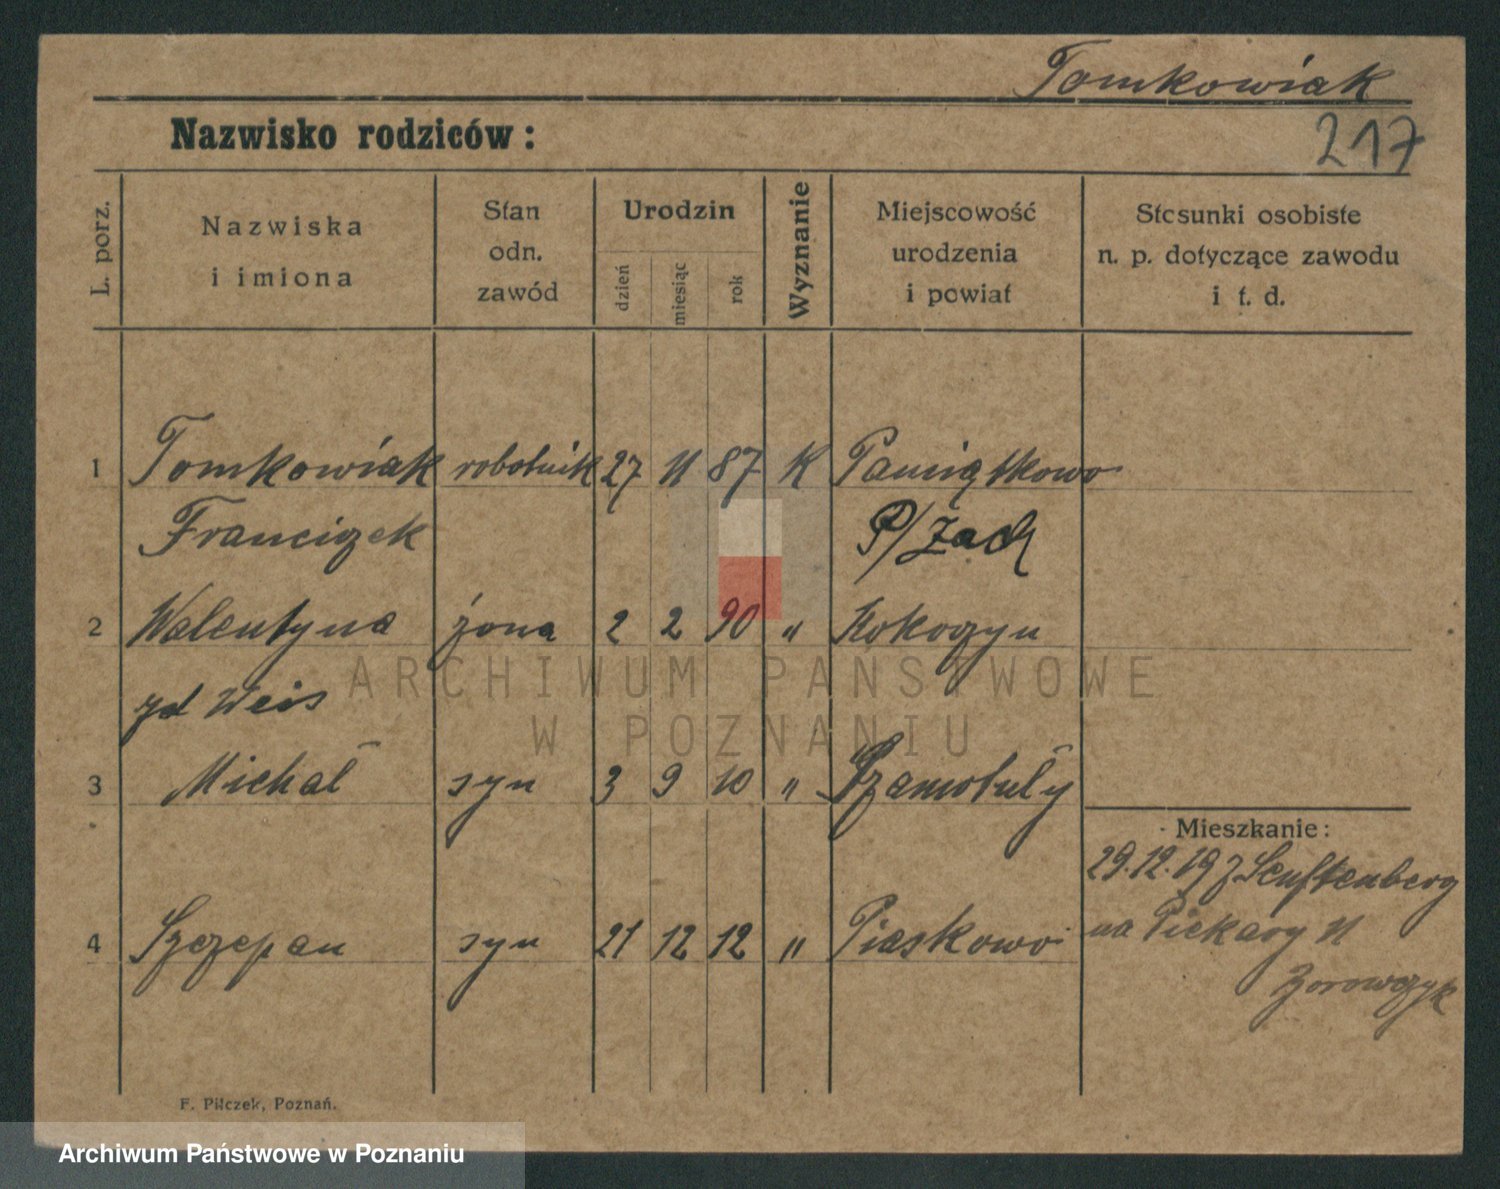 Tomkowiak
Nazwisko rodziców:
217
L. porz.
Nazwiska
i imiona
Stan
odn.
zawód
Urodzin
dzień
miesiąc
rok
Wyznanie
Miejscowość
urodzenia
i powiat
Stosunki osobiste
n. p. dotyczące zawodu
i t. d.
1 Tomkowiak robotnik 27 11 87 K Pamiątkowo
Franciszek P/Zach
2 Walentyna żona 2 2 90 " Kokoszyn
zd Weis
ARCHIWUM PAŃSTWOWE
W POZNANIU
3 Michał syn 3 9 10 " Szamotuły
Mieszkanie:
29.12.19 z Senftenberg
4 Szczepan syn 21 12 12 " Piaskowo
na Piekary 11
F. Pilczek, Poznań.
Archiwum Państwowe w Poznaniu